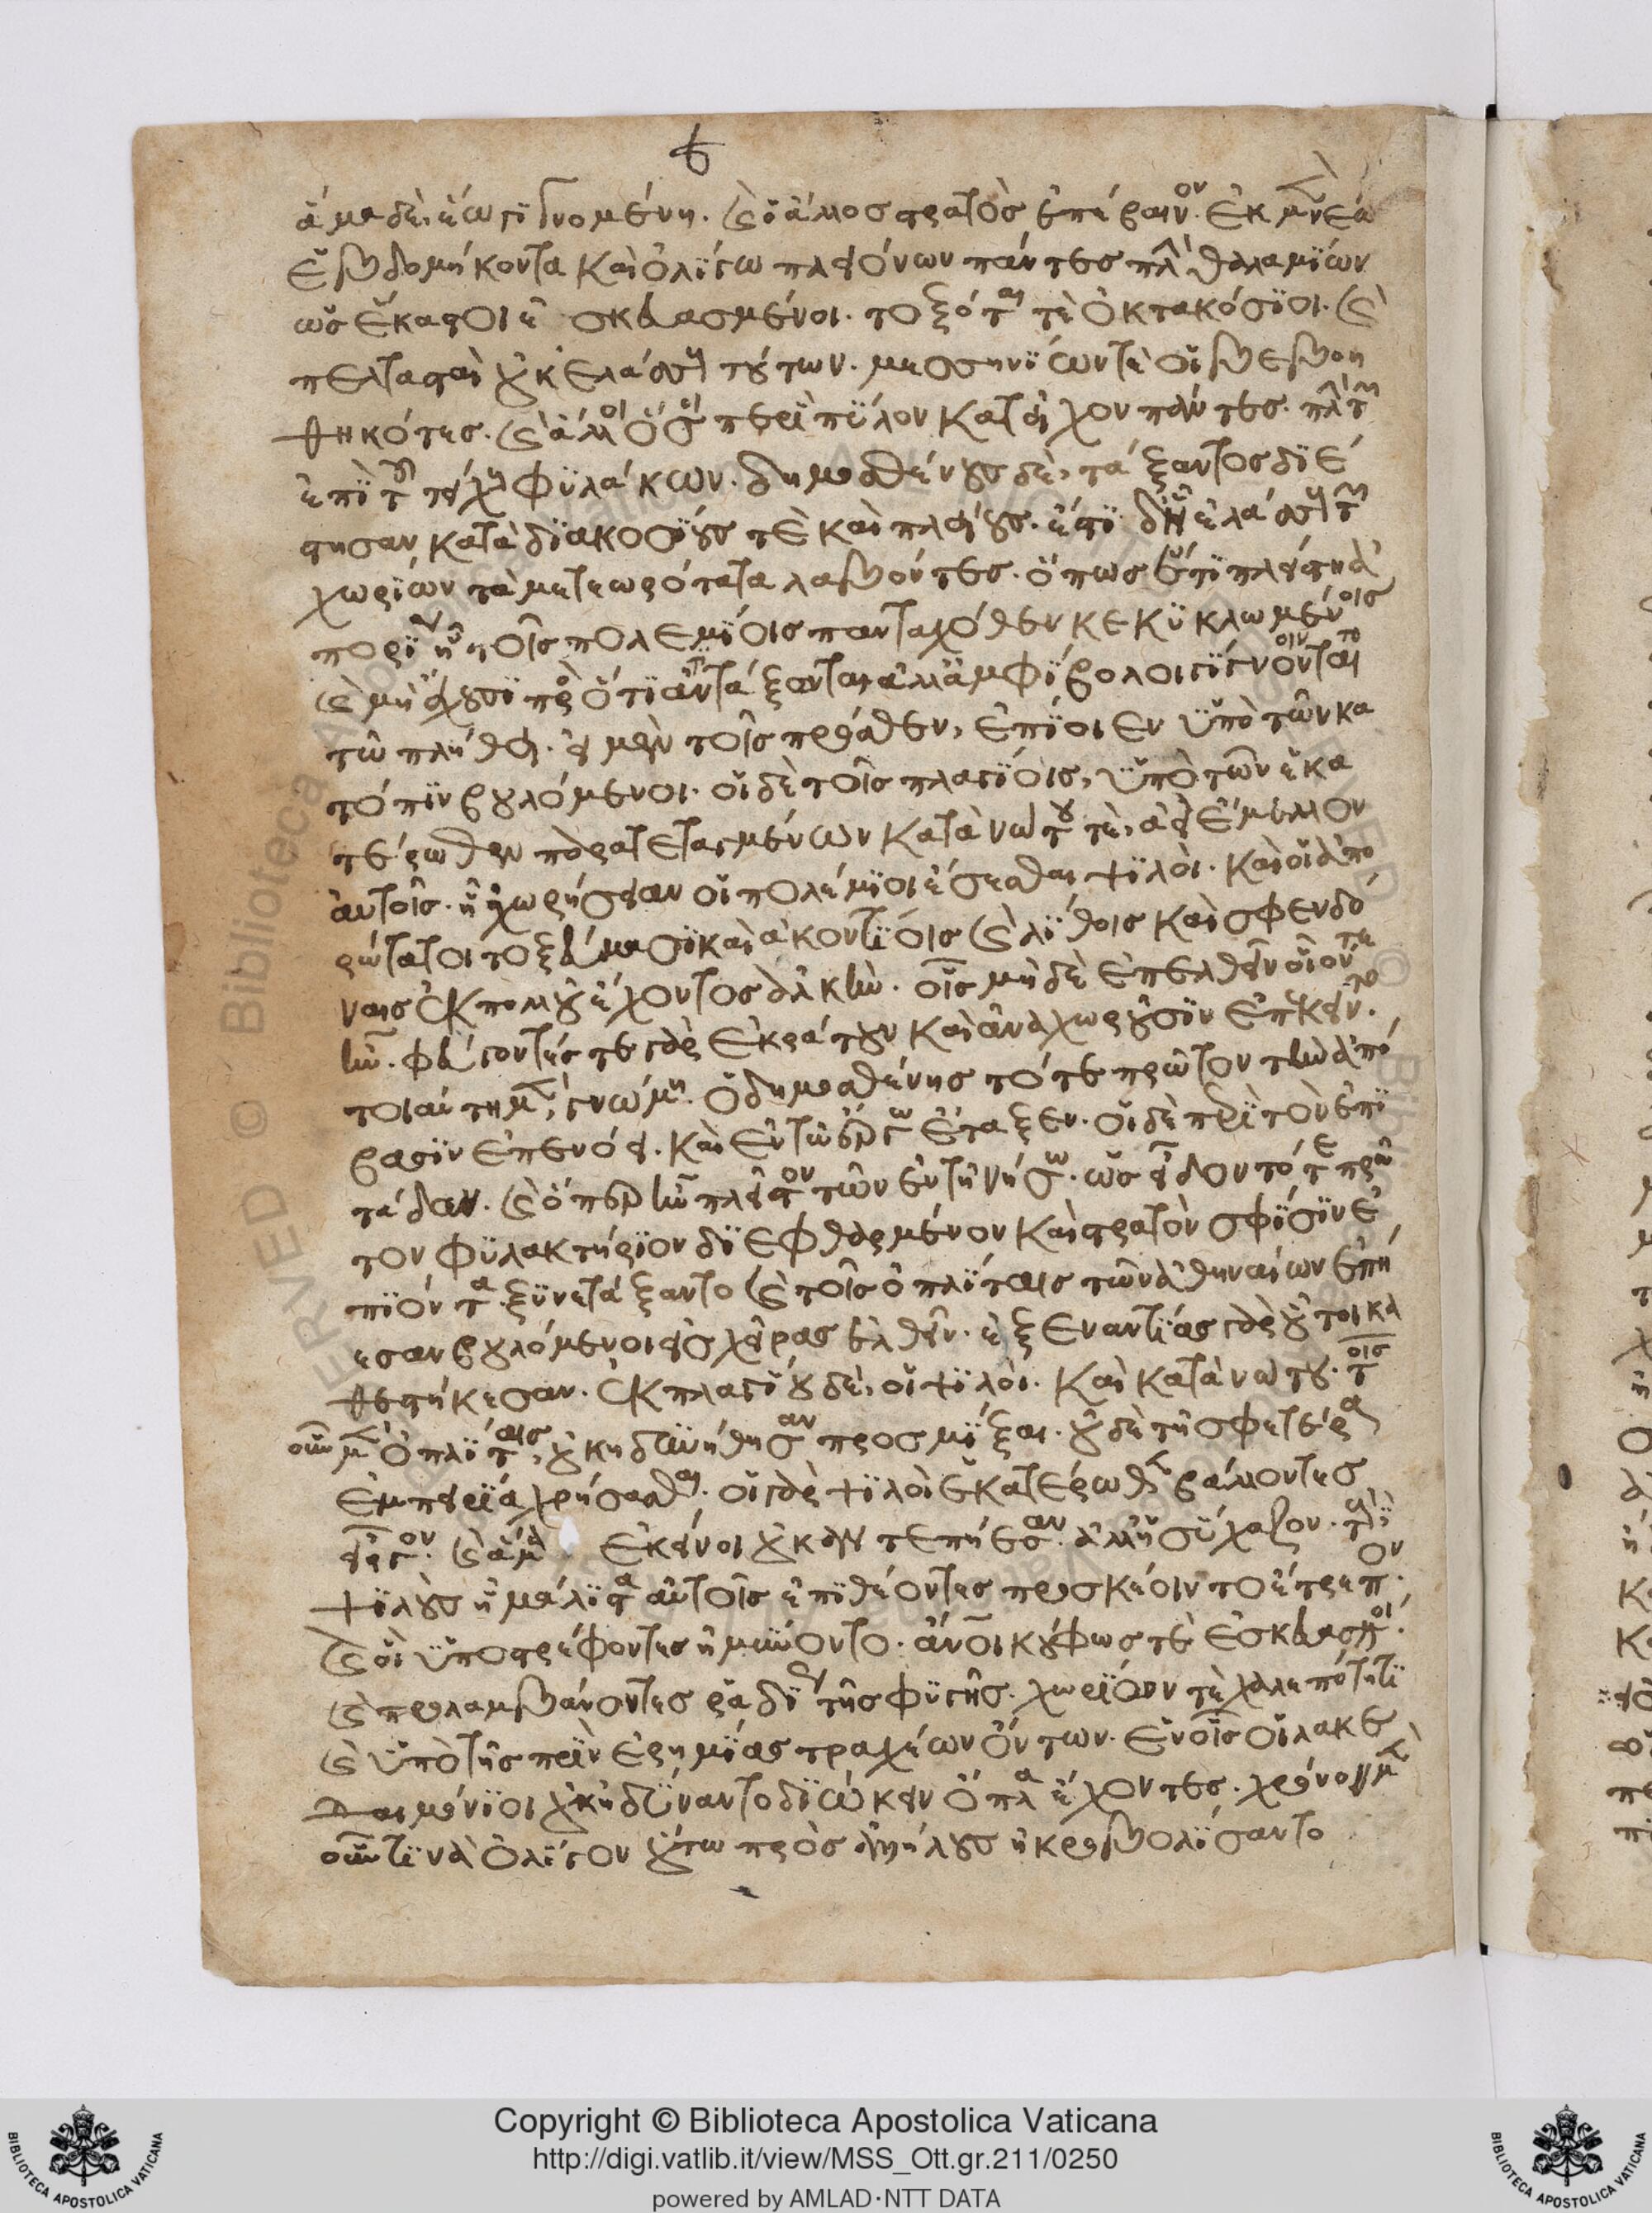 ἅμα δὲ, ἕω γιγνομένη. καὶ ὁ ἄλλος στρατὸς ἐπέβαινον. ἐκ μὲν νεῶ
ἑβδομήκοντα καὶ ὀλίγω πλειόνων πάντες πλὴν θαλαμιῶν
ὡς ἕκαστοι ἐσκευασμένοι. τοξόται τὲ ὀκτακόσιοι. καὶ
πελτασταὶ οὐκ ἐλάσσους τούτων. μεσσηνίων τὲ οἱ βεβοη
θηκότες. καὶ ἄλλοι ὅσοι περὶ πύλον κατεῖχον πάντες. πλὴν τῶν
ἐπὶ τοῦ τείχους φυλάκων. δημοσθένους δὲ, τάξαντος διέ
στησαν κατὰ διακοσίους τὲ καὶ πλείους. ἔστι δ' ἧ ἐλάσσους τῶν
χωρίων τὰ μετεωρότατα λαβόντες. ὅπως ὅτι πλείστη ἀ
πορία ἦ τοῖς πολεμίοις πανταχόθεν κεκυκλωμένοις
καὶ μὴ ἔχουσι πρὸς ὅτι ἀντιτάξωνται, ἀλλ' ἀμφίβολοι γίγνοιντο
τῶ πλήθει. εἰ μὲν τοῖς πρόσθεν, ἐπίοιεν ὑπὸ τῶν κα
τόπιν βουλόμενοι. οἱ δὲ τοῖς πλαγίοις, ὑπὸ τῶν ἑκα
τέρωθεν παρατεταγμένων κατὰ νώτου τὲ, ἀεὶ ἔμελλον
αὐτοῖς. ἧ χωρήσειαν οἱ πολέμιοι ἔσεσθαι ψιλοὶ. καὶ οἱ ἀπο
ρώτατοι τοξεύμασι καὶ ἀκοντίοις καὶ λίθοις καὶ σφενδό
ναις ἐκ πολλοῦ ἔχοντος ἀλκὴν. οἷς μὴ δὲ ἐπελθεῖν οἷόν τε
ἦν. φεύγοντές τε γὰρ ἐκράτουν καὶ ἀναχωροῦσιν ἐπέκειντο.
τοιαύτη μὲν γνώμη ὁ δημοσθένης τό τε πρῶτον τὴν ἀπό
βασιν ἐπενόει. καὶ ἐν τῶ ἔργω ἔταξεν. οἱ δὲ περὶ τὸν ἐπι
τάδαν. καὶ ὅπερ ἦν πλεῖστον τῶν ἐν τῆ νήσω. ὡς εἶδον τό τε πρῶ
τον φυλακτήριον διεφθαρμένον καὶ στρατὸν σφίσιν ἐ
πιόντα. ξυνετάξαντο καὶ τοῖς ὁπλίταις τῶν ἀθηναίων ἐπή
εσαν βουλόμενοι εἰς χεῖρας ἐλθεῖν. ἐξ ἐναντίας γὰρ οὗτοι κα
θεστήκεσαν. ἐκ πλαγίου δὲ, οἱ ψιλοὶ. καὶ κατὰ νώτου. τοῖς
οὖν μὲν ὁπλίταις, οὐκ ἠδυνήθησαν προσμίξαι. οὐδὲ τῆ σφετέρα
ἐμπειρία χρήσασθαι. οἱ γὰρ ψιλοὶ ἑκατέρωθεν βάλλοντες
εἶργον. καὶ ἅμα ἐκεῖνοι οὐκ ἀντεπήεσαν. ἀλλ' ἡσύχαζον. τοὺς δὲ
ψιλοὺς ἧ μάλιστα αὐτοῖς ἐπιθέοντες προσκέοιντο ἔτρεπον.
καὶ οἱ ὑποστρέφοντες ἠμύνοντο. ἄνοι κούφως τὲ ἐσκευασμένοι.
καὶ προλαμβάνοντες ῥαδίως τῆς φυγῆς. χωρίων τὲ χαλεπότητι
καὶ ὑπὸ τῆς πρὶν ἐρημίας τραχέων ὄντων. ἐν οἷς οἱ λακε
δαιμόνιοι οὐκ ἠδύναντο διώκειν ὅπλα ἔχοντες. χρόνον μὲν
οὖν τινὰ ὀλίγον οὕτω πρὸς ἀλλήλους ἠκροβολίσαντο
Copyright © Biblioteca Apostolica Vaticana
http://digi.vatlib.it/view/MSS_Ott.gr.211/0250
powered by AMLAD·NTT DATA
BIBLIOTECA APOSTOLICA VATICANA
BIBLIOTECA APOSTOLICA VATICANA